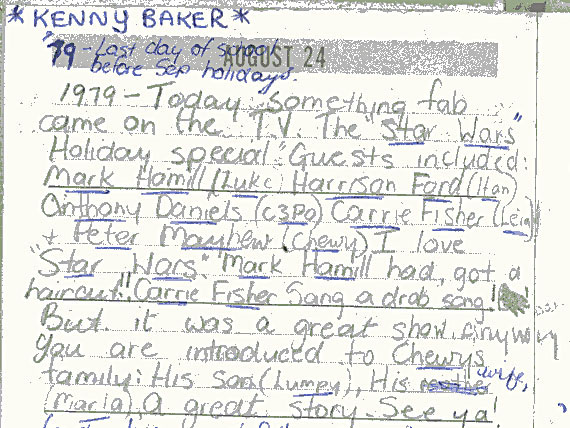 *KENNY BAKER*
"79 - Last day of school
AUGUST 24
before Sep holidays.
1979 - Today something fab
came on the T.V. The "Star Wars"
Holiday special" Guests included:
Mark Hamill (Luke) Harrison Ford (Han)
Anthony Daniels (C3PO) Carrie Fisher (Leia)
+ Peter Mayhew (Chewy) I love
"Star Wars." Mark Hamill had got a
haircut! Carrie Fisher Sang a drab song!
But it was a great show anyway
you are introduced to Chewys
family: His son (Lumpy), His wife,
(Marla). A great story. See ya!